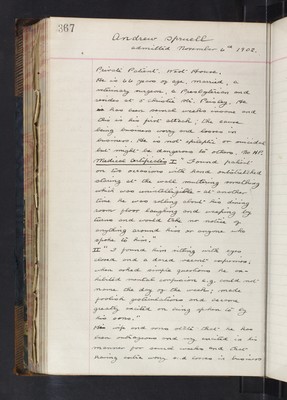 367
Andrew Spruell
admitted November 6th 1902.
Private Patient. West House.
He is 60 years of age, married, a
veterinary surgeon, a Presbyterian and
resides at 8 Christie St. Paisley. He
has been several weeks insane and
this is his first attack; the cause
being business worry and losses in
business. He is not epileptic or suicidal
but might be dangerous to others. No H.P.
Medical Certificates I "Found patient
on two occasions with hands outstretched
staring at the walls muttering something
which was unintelligible - at another
time he was rolling about his dining
room floor laughing and weeping by
turns and would take no notice of
anything around him or anyone who
spoke to him."
II "I found him sitting with eyes
closed and a dazed vacant expression,
when asked simple questions he ex-
hibited mental confusion e.g. could not
name the day of the week; made
foolish gesticulations and became
greatly excited on being spoken to by
his sons."
His wife and sons state that he has
been outrageous and very excited in his
manner for several weeks and that
having been very a d losses in business